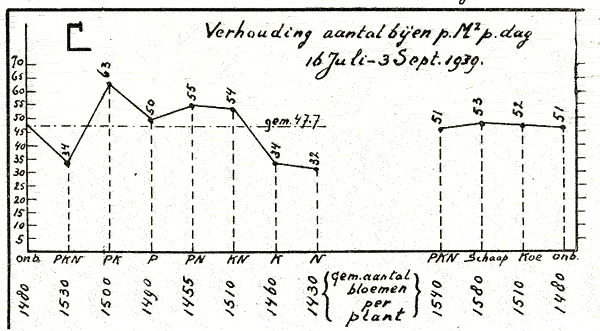 C
Verhouding aantal bijen p. M² p. dag
16 Juli-3 Sept. 1939.
70
65
60
55
50
45
40
35
30
25
20
15
10
5
34
63
50
55
54
34
32
gem. 47.7
51
53
52
51
onb. PKN PK P PN KN K N PKN Schaap Koe onb.
1480 1530 1500 1490 1455 1510 1460 1430
{gem. aantal
bloemen
per
plant}
1540 1580 1510 1480